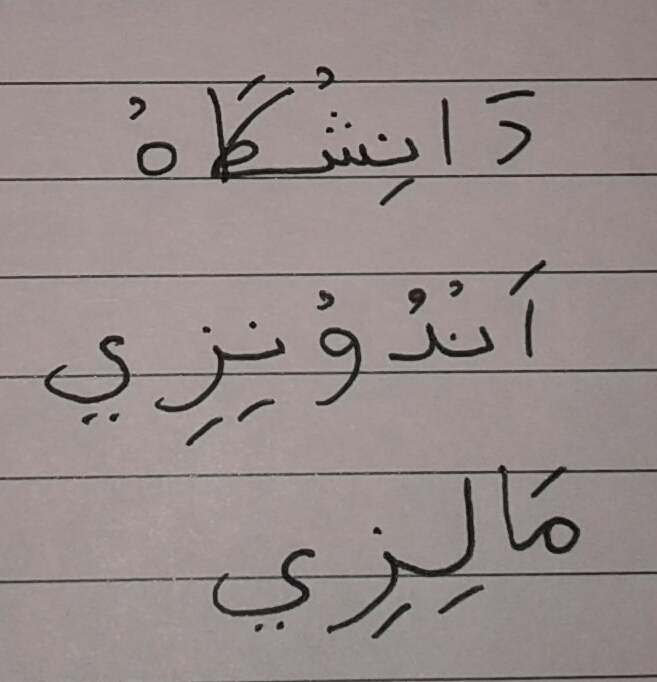 دَانِشْگَاهْ
اَنْدُوْنِزِي
مَالِزِي